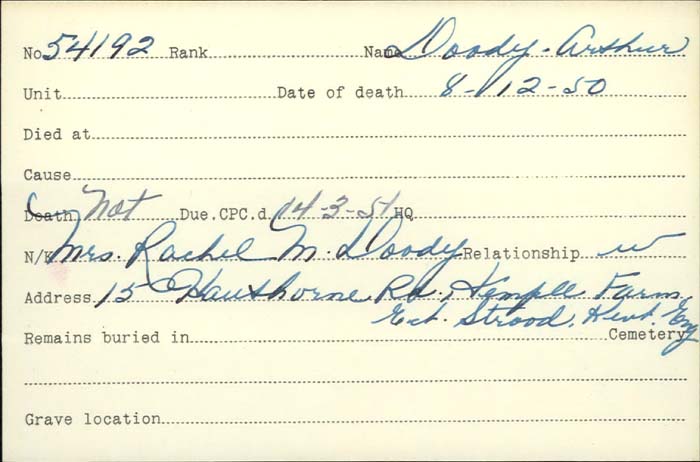 No 54192 Rank Name Doody - Arthur
Unit Date of death 8-12-50
Died at
Cause
Death Not Due. CPC.d. 14-3-51 HQ
N/K Mrs. Rachel M. Doody Relationship w
Address 15 Hawthorne Rd. Temple Farm,
Ext. Strood, Kent. Eng
Remains buried in Cemetery
Grave location